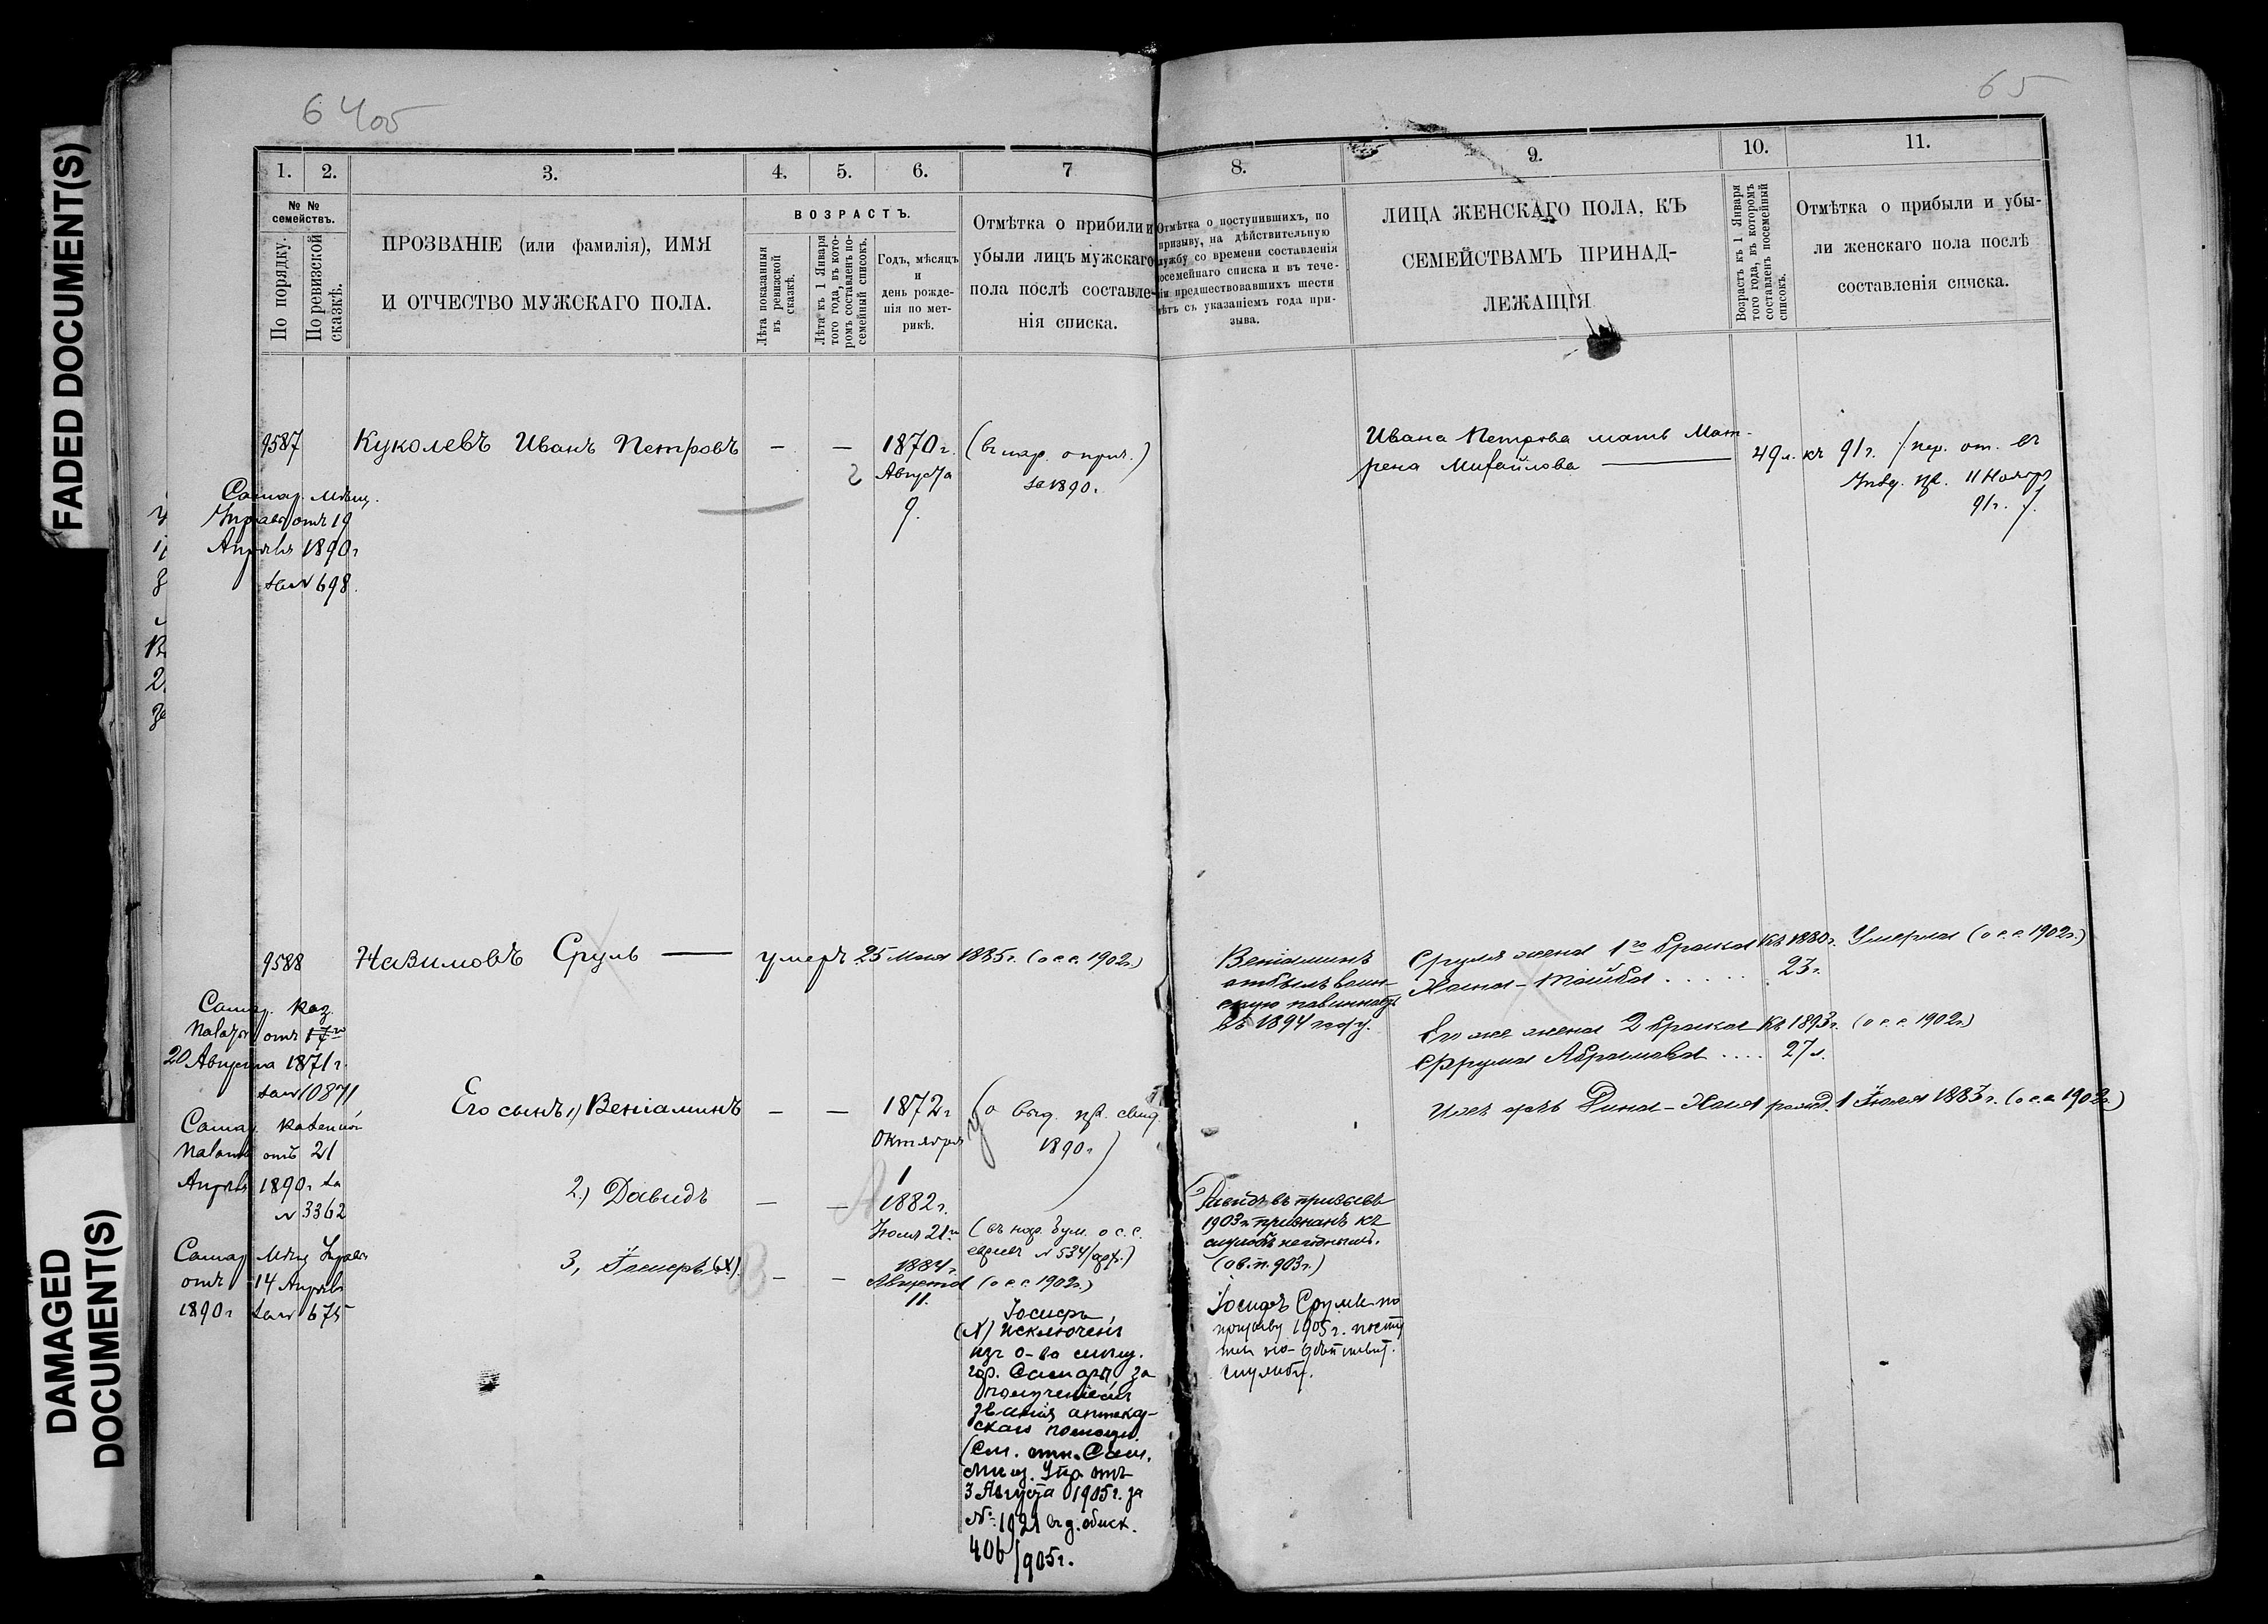 FADED DOCUMENT(S)
DAMAGED
DOCUMENT(S)
65
1.
2.
3.
4.
5.
6.
7
№ №
семействъ.
По порядку.
По ревизской
сказкѣ.
ПРОЗВАНІЕ (или фамилія), ИМЯ
И ОТЧЕСТВО МУЖСКАГО ПОЛА.
ВОЗРАСТЪ.
Лѣта показанныя
въ ревизской
сказкѣ.
Лѣта къ 1 Января
того года, въ кото-
ромъ составленъ по-
семейный списокъ.
Годъ, мѣсяцъ
и
день рожде-
нія по мет-
рикѣ.
Отмѣтка о прибили и
убыли лицъ мужскаго
пола послѣ составле-
нія списка.
9587
Куколевъ Иванъ Петровъ
— —
1870 г.
Августа
9.
за 1890.
Самар. мѣщ.
Управы отъ 19
Апрѣля 1890 г
за № 698.
9588
Назимовъ Сруль — умеръ 25 Мая 1885 г. (о с.с. 1902 г.)
Самар. каз.
палаты отъ
20 Августа 1871 г.
за № 10871
Его сынъ 1) Веніаминъ
— —
1872 г
Октября
1
1890 г)
Самар. казенной
палаты отъ 21
Апрѣля 1890 г за
№ 3362
2.) Давидъ
— —
1882 г.
Іюля 21
евреевъ № 534/
Самар. Мѣщ. Управы
отъ 14 Апрѣля
1890 г за № 675
3, Іосифъ (х).
— —
1884 г.
Августа
11.
(о с.с. 1902 г.)
Іосифъ
(х) исключенъ
изъ о-ва мѣщ.
гор. Самары, за
полученіемъ
званія аптекар-
скаго помощн.
(См. отн. Сам.
мѣщ. Упр. отъ
3 Августа 1905 г. за
№ 1921
406/905 г.
8.
9.
10.
11.
Отмѣтка о поступившихъ, по
призыву, на дѣйствительную
службу со времени составленія
посемейнаго списка и въ тече-
ніи предшествовавшихъ шести
лѣтъ съ указаніемъ года при-
зыва.
ЛИЦА ЖЕНСКАГО ПОЛА, КЪ
СЕМЕЙСТВАМЪ ПРИНАД-
ЛЕЖАЩІЯ
Возрастъ къ 1 Января
того года, въ которомъ
составленъ посемейный
списокъ.
Отмѣтка о прибыли и убы-
ли женскаго пола послѣ
составленія списка.
Ивана Петрова мать Мат-
рена Михайлова — 49 л. къ 91 г.
11 Ноября
91 г.
Веніаминъ
отбылъ воин-
скую повинность
въ 1894 году.
Сруля жена 1го брака къ 1880 г. Умерла (о с.с. 1902 г.)
Хана-Тойба . . . . . 23 г.
Его же жена 2 брака къ 1893 г. (о с.с. 1902 г.)
Фрума Абрамова . . . . 27 л.
Ихъ дочь Дина-Хая рожд. 1 Іюля 1883 г. (о с.с. 1902 г.)
Давидъ въ призывѣ
1903 г. признанъ къ
службѣ негоднымъ.
Іосифъ Сруль по
призыву 1905 г. посту
пил на дѣйствит.
службу.